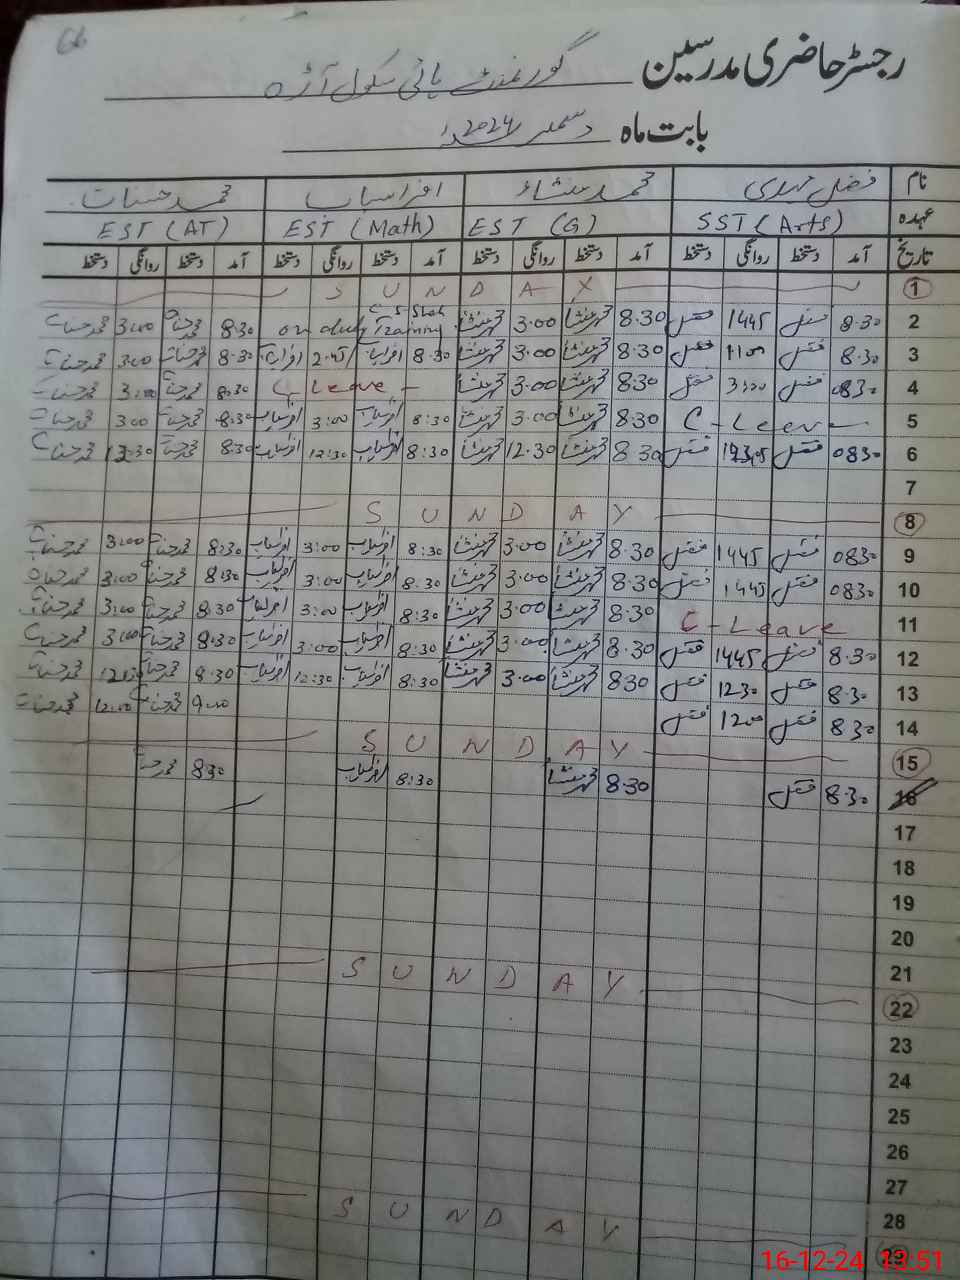 66
رجسٹر حاضری مدرسین گورنمنٹ ہائی سکول آڑہ
بابت ماہ دسمبر 2024ء
نام فضل مہدی محمد منشاء افراسیاب محمد حسنات
عہدہ SST (Arts) EST (G) EST (Math) EST (AT)
تاریخ آمد دستخط روانگی دستخط آمد دستخط روانگی دستخط آمد دستخط روانگی دستخط آمد دستخط روانگی دستخط
1 SUNDAY
2 8.30 فضل 1445 فضل 8.30 محمد منشاء 3.00 محمد منشاء on duty Training 8.30 محمد حسنات 3:00 محمد حسنات
3 8.30 فضل فضل 8.30 محمد منشاء 3.00 محمد منشاء 8.30 افراسیاب 2.45 افراسیاب 8.30 محمد حسنات 3:00 محمد حسنات
4 0830 فضل 3:00 فضل 8.30 محمد منشاء 3.00 محمد منشاء C Leave 8.30 محمد حسنات 3:00 محمد حسنات
5 C-Leave 8.30 محمد منشاء 3.00 محمد منشاء 8:30 افراسیاب 3:00 افراسیاب 8.30 محمد حسنات 3.00 محمد حسنات
6 0830 فضل فضل 8.30 محمد منشاء 12.30 محمد منشاء 8:30 افراسیاب 12:30 افراسیاب 8.30 محمد حسنات 12.30 محمد حسنات
7
8 SUNDAY
9 0830 فضل 1445 فضل 8.30 محمد منشاء 3.00 محمد منشاء 8:30 افراسیاب 3:00 افراسیاب 8.30 محمد حسنات 3:00 محمد حسنات
10 0830 فضل 1445 فضل 8.30 محمد منشاء 3.00 محمد منشاء 8:30 افراسیاب 3:00 افراسیاب 8.30 محمد حسنات 3:00 محمد حسنات
11 C-Leave 8.30 محمد منشاء 3.00 محمد منشاء 8:30 افراسیاب 3:00 افراسیاب 8.30 محمد حسنات 3:00 محمد حسنات
12 8.30 فضل 1445 فضل 8.30 محمد منشاء 3.00 محمد منشاء 8:30 افراسیاب 3:00 افراسیاب 8.30 محمد حسنات 3:00 محمد حسنات
13 8.30 فضل 1230 فضل 8.30 محمد منشاء 3.00 محمد منشاء 8:30 افراسیاب 12:30 افراسیاب 8.30 محمد حسنات محمد حسنات
14 8.30 فضل 1200 فضل 9.00 محمد حسنات 12:00 محمد حسنات
15 SUNDAY
16 8.30 فضل 8.30 محمد منشاء 8:30 افراسیاب 8.30 محمد حسنات
17
18
19
20
21 SUNDAY
22
23
24
25
26
27
28 SUNDAY
29
16-12-24 13:51